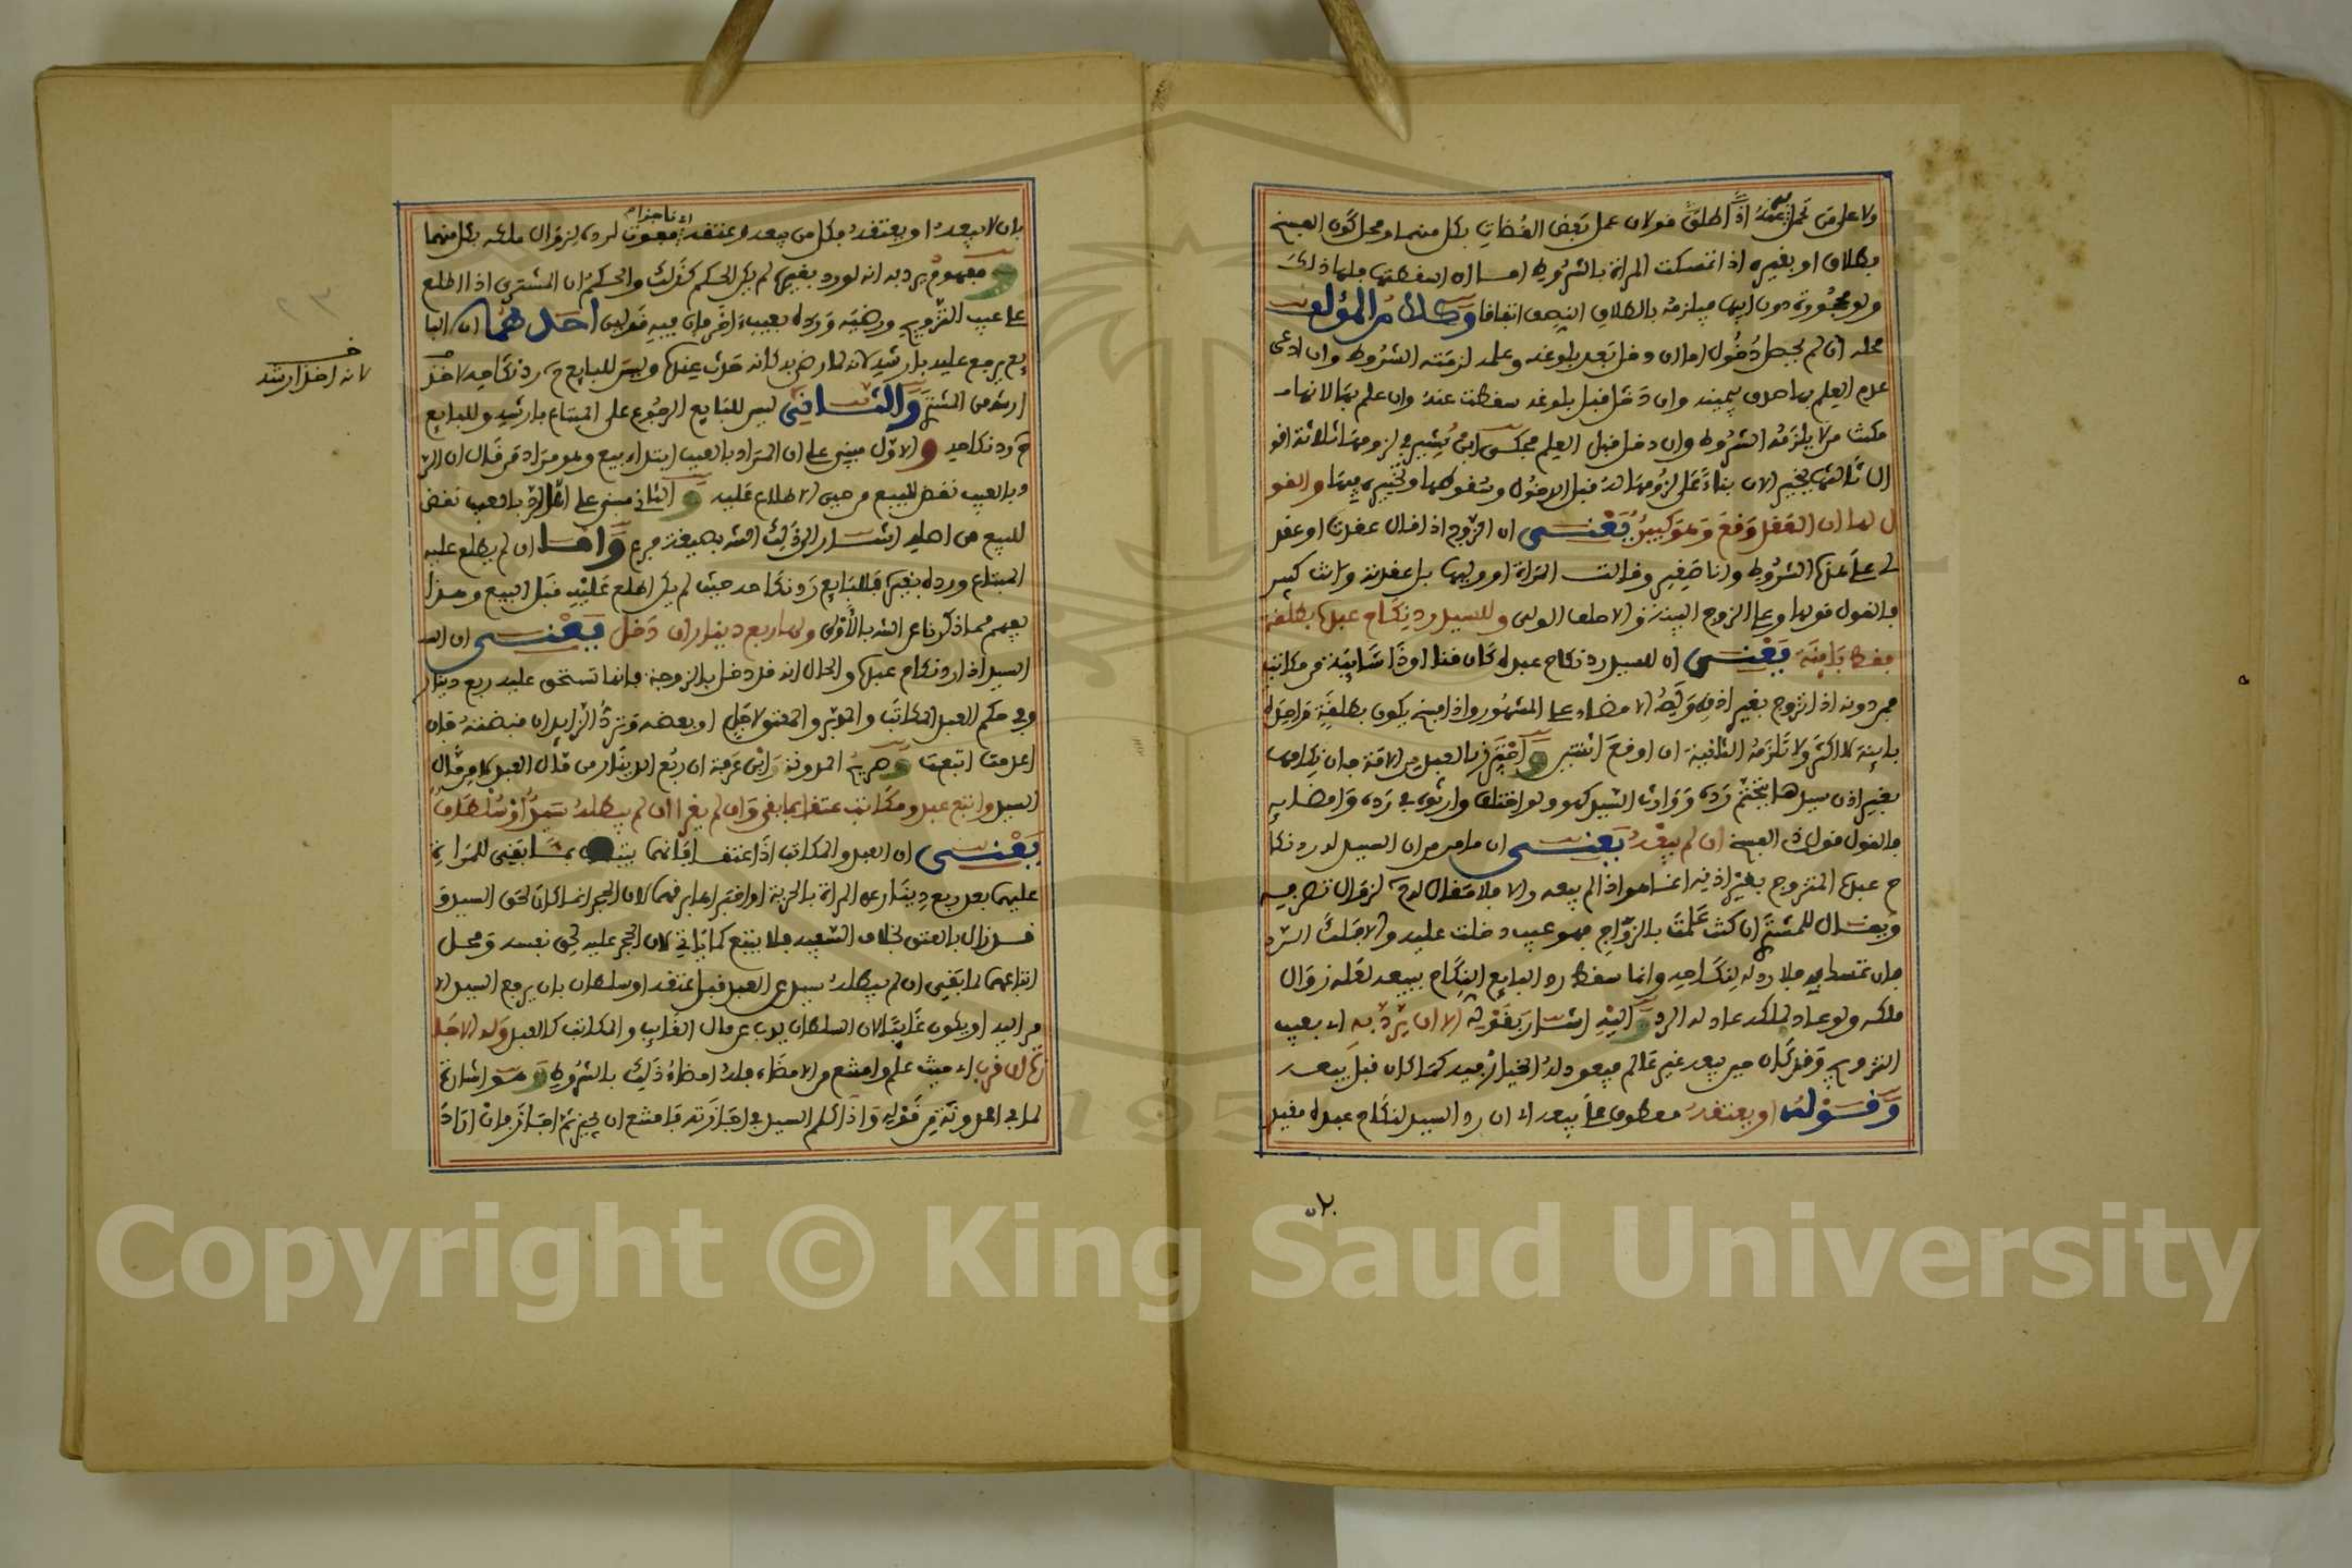 ولا على من تحمل عنه اذا اطلق فولان عمل بعض القضات بكل منهما ومحل كون الفسخ
بطلاق او بغيره اذا تمسكت المراة بالشروط اما ان اسقطتها فلها ذلك
ولو محجورة دون ابيها فيلزمه بالطلاق النصف اتفاقا وكلام المؤلف
محله ان لم يحصل دخول اما ان دخل بعد بلوغه وعلمه لزمته الشروط وان ادعى
عدم العلم بها صدق بيمينه وان دخل قبل بلوغه سقطت عنه وان علم بها لانها
مكنت من لا يلزمه الشروط وان دخل قبل العلم فحكى ابن بشير في لزومها ثلاثة افو
ال ثالثها يخير الان بناء على لزومها له قبل الدخول وسقوطها وتخييره فيها والقو
ل لها ان العقد وقع وهو كبير يعنى ان الزوج اذا قال عقدت او عقد
لى على هذه الشروط وانا صغير وقالت المراة او وليها بل عقدته وانت كبير
فالقول قولها وعلى الزوج البينة والا حلف الولى وللسيد رد نكاح عبده بطلقة
فقط باينة يعنى ان للسيد رد نكاح عبده كان قنا او ذا شايبة من مكاتب
فمن دونه اذا تزوج بغير اذنه وله الامضاء على المشهور واذا فسخ يكون بطلقة واحدة
باينة لا اكثر ولا تلزمه الثانية ان اوقع اثنتين واحترز بالعبد من الامة فان نكاحها
بغير اذن سيدها يتحتم رده ووارث السيد كهو ولو اختلف وارثوه في رده وامضايه
فالقول قول ذى الفسخ ان لم يبعه يعنى ان ما مر من ان السيد له رد نكا
ح عبده المتزوج بغير اذنه انما هو اذا لم يبعه والا فلا مقال له لزوال تصرفه
ويقال للمشتري ان كنت علمت بالزواج فهو عيب دخلت عليه والا فلك الرد
فان تمسك به فلا رد له لنكاحه وانما سقط رد البايع النكاح ببيعه لعلة زوال
ملكه ولو عاد لملكه عاد له الرد واليه اشار بقوله الا ان يرد به اى بعيب
التزويج وقد كان حين بيعه غير عالم فيعود له الخيار فيه كما كان قبل بيعه
وقوله او يعتقه معطوف على يبعه اى ان رد السيد لنكاح عبده مقيد
بان لا يبعه او يعتقه فكل من بيعه وعتقه مفوت لرده لزوال ملكه بكل منهما
اى ناجزا
ومفهوم يرد به انه لو رد بغيره لم يكن الحكم كذلك والحكم ان المشتري اذا اطلع
على عيب التزويج ورضيه ورده بعيب اخر فان فيه قولين احدهما ان البا
يع يرجع عليه بارشه لانه لما رضي به كانه حدث عنده وليس للبايع رد نكاحه لاخذ
ارشه من المشتري والثانى ليس للبايع الرجوع على المبتاع بارشه وللبايع
رد نكاحه والاول مبنى على ان الرد بالعيب ابتداء بيع وهو مراد من قال ان الر
د بالعيب نقض للبيع من حين الاطلاع عليه والثانى مبنى على ان الرد بالعيب نقض
للبيع من اصله اشار الى ذلك الش بصيغة فرع واما ان لم يطلع عليه
المبتاع ورده بغيره فللبايع رد نكاحه حيث لم يكن اطلع عليه قبل البيع وهذا
يفهم مما ذكرناه عن الش بالاولى ولها ربع دينار ان دخل يعنى ان ال
السيد اذا رد نكاح عبده والحال انه قد دخل بالزوجة فانما تستحق عليه ربع دينار
وفي حكم العبد المكاتب والمدبر والمعتق لاجل او بعضه وترد الزايد ان قبضته فان
اعدمت اتبعت وصريح المدونة وابن عرفة ان ربع الدينار من مال العبد لا من مال
السيد واتبع عبد ومكاتب عتقا بما بقى وان لم يغرا ان لم يبطله سيد او سلطان
يعنى ان العبد والمكاتب اذا عتقا فانهما بما بقى للمراة
عليهما بعد ربع دينار غرا المراة بالحرية او اخبراها برقهما لان الحجر انما كان لحق السيد و
قد زال بالعتق بخلاف السفيه فلا يتبع كما ياتى لان الحجر عليه لحق نفسه ومحل
اتباعهما لما بقي ان لم يبطله سيد عن العبد قبل عتقه او سلطان بان يرفع السيد الا
مر اليه او يكون غايبا لان السلطان يذب عن مال الغايب والمكاتب كالعبد وله الاجا
زة ان قرب اى حيث علم وامتنع من الامضاء فله امضاء ذلك بالشروط وهو اشارة
لما في المدونة من قوله واذا كلم السيد في اجازته فامتنع ان يجيز ثم اجاز فان اراد
لانه اخذ ارشه